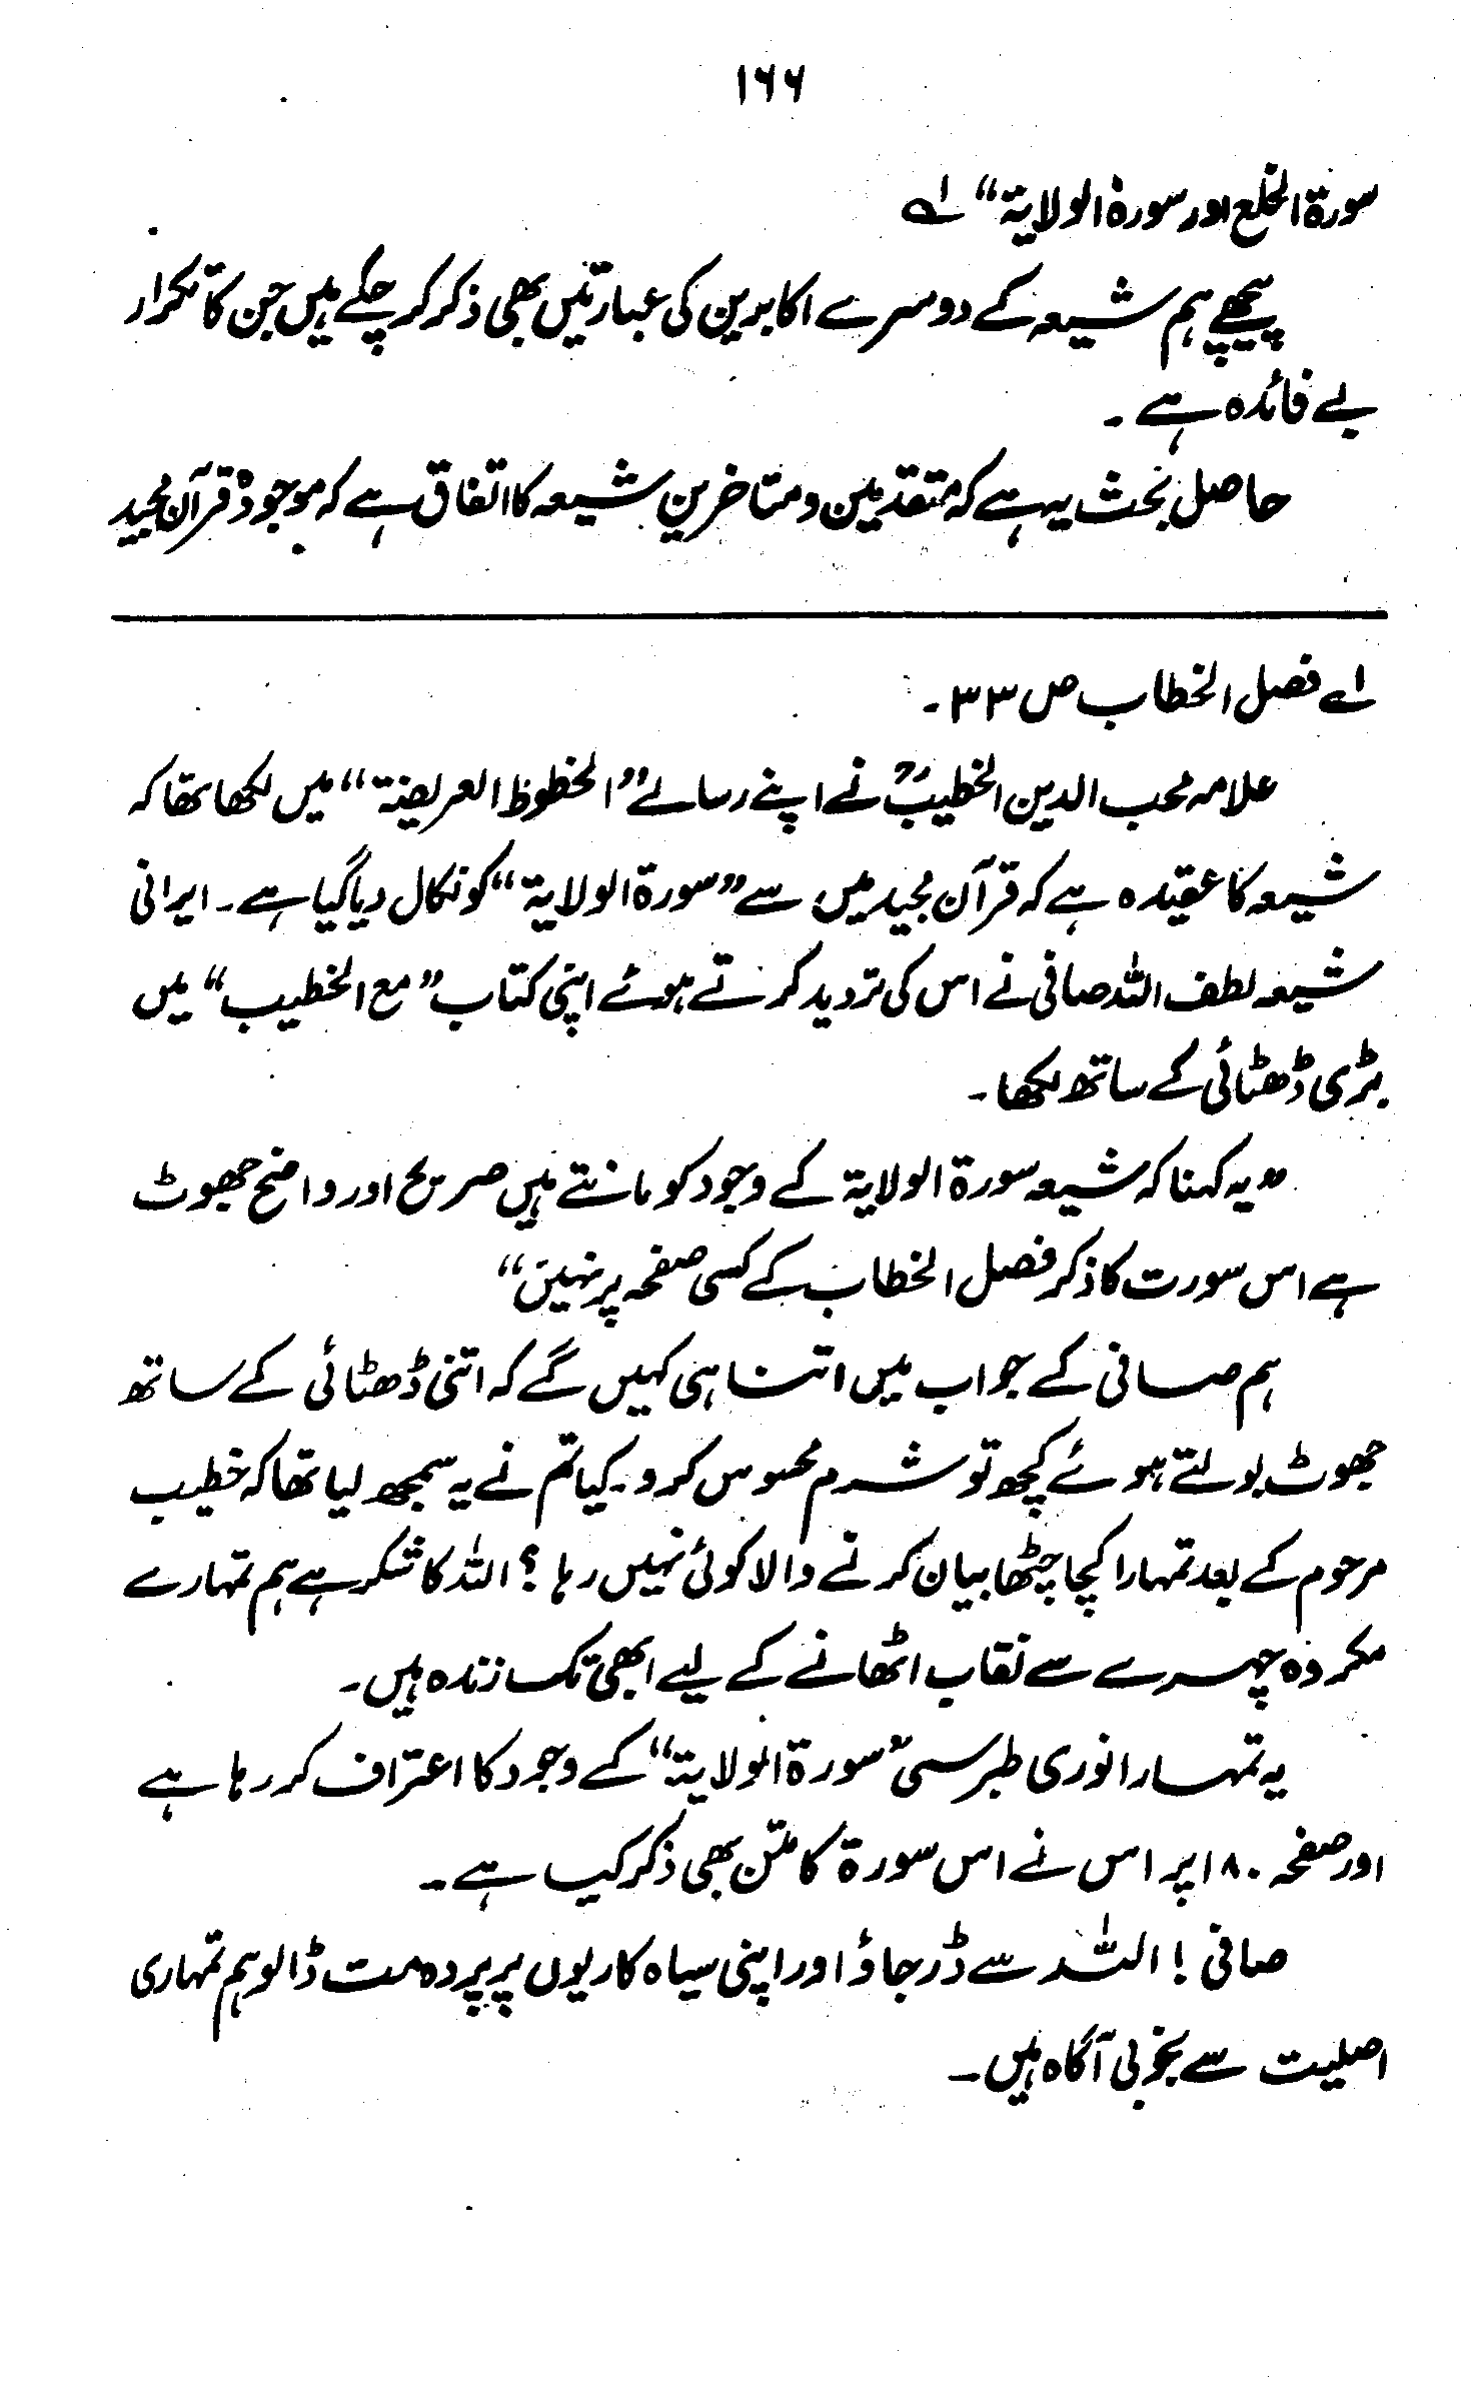 ۱۶۶
سورۃ الخلع اور سورۃ الولایۃ“ لے
پیچھے ہم شیعہ کے دوسرے اکابرین کی عبارتیں بھی ذکر کر چکے ہیں جن کا تکرار
بے فائدہ ہے ۔
حاصل بحث یہ ہے کہ متقدمین و متاخرین شیعہ کا اتفاق ہے کہ موجودہ قرآن مجید
لے فصل الخطاب ص ۳۳ ۔
علامہ محب الدین الخطیبؒ نے اپنے رسالے ”الخطوط العریضۃ“ میں لکھا تھا کہ
شیعہ کا عقیدہ ہے کہ قرآن مجید میں سے ”سورۃ الولایۃ“ کو نکال دیا گیا ہے ۔ ایرانی
شیعہ لطف اللہ صافی نے اس کی تردید کرتے ہوئے اپنی کتاب ”مع الخطیب“ میں
بڑی ڈھٹائی کے ساتھ لکھا ۔
”یہ کہنا کہ شیعہ سورۃ الولایۃ کے وجود کو مانتے ہیں صریح اور واضح جھوٹ
ہے اس سورت کا ذکر فصل الخطاب کے کسی صفحہ پر نہیں“
ہم صافی کے جواب میں اتنا ہی کہیں گے کہ اتنی ڈھٹائی کے ساتھ
جھوٹ بولتے ہوئے کچھ تو شرم محسوس کرو ۔ کیا تم نے یہ سمجھ لیا تھا کہ خطیب
مرحوم کے بعد تمہارا کچا چٹھا بیان کرنے والا کوئی نہیں رہا ؟ اللہ کا شکر ہے ہم تمہارے
مکروہ چہرے سے نقاب اٹھانے کے لیے ابھی تک زندہ ہیں ۔
یہ تمہارا نوری طبرسی ”سورۃ الولایۃ“ کے وجود کا اعتراف کر رہا ہے
اور صفحہ ۱۸۰ پر اس نے اس سورۃ کا متن بھی ذکر کیا ہے ۔
صافی ! اللہ سے ڈر جاؤ اور اپنی سیاہ کاریوں پر پردہ مت ڈالو ہم تمہاری
اصلیت سے بخوبی آگاہ ہیں ۔